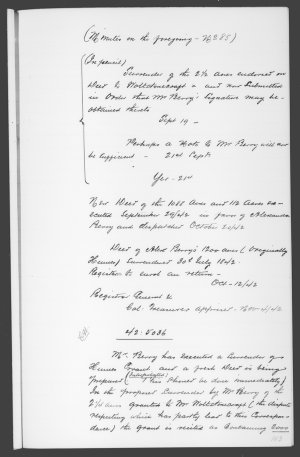 (Minutes on the foregoing - No 285)
(In pencil)
Surrender of the 2½ acres endorsed on
Deed to Wollstonecraft & and now submitted
in order that Mr Berry's signature may be
obtained thereto
Sept 19 -
Perhaps a Note to Mr Berry will now
be sufficient - 21st Sept
Yes - 21st
New Deed of the 1088 Acres and 112 Acres ex-
ecuted September 29/42 in favor of Alexander
Berry and despatched October 20/42
Deed of Alexr Berry's 1200 acres (originally
Humes) surrendered 30th July 1842 -
Registrar to enrol on return -
Oct 12/42
Registrar General &
Col. Treasurer apprised - Nov 4/42
42/5036
Mr Berry has executed a Surrender of
Humes Grant and a fresh Deed is being
prepared (Interpolated) (This should be done immediately)
In the proposed Surrender by Mr Berry of the
2½ acres granted to Mr Wollstonecraft (the dispute
respecting which has partly led to this Correspon-
dence) the Grant is recited as Containing